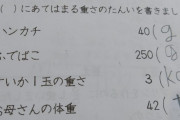 ( )にあてはまる重さのたんいを書きまし
ハンカチ 40(g
ふでばこ 250(g
すいか1玉の重さ 3(k
お母さんの体重 42(